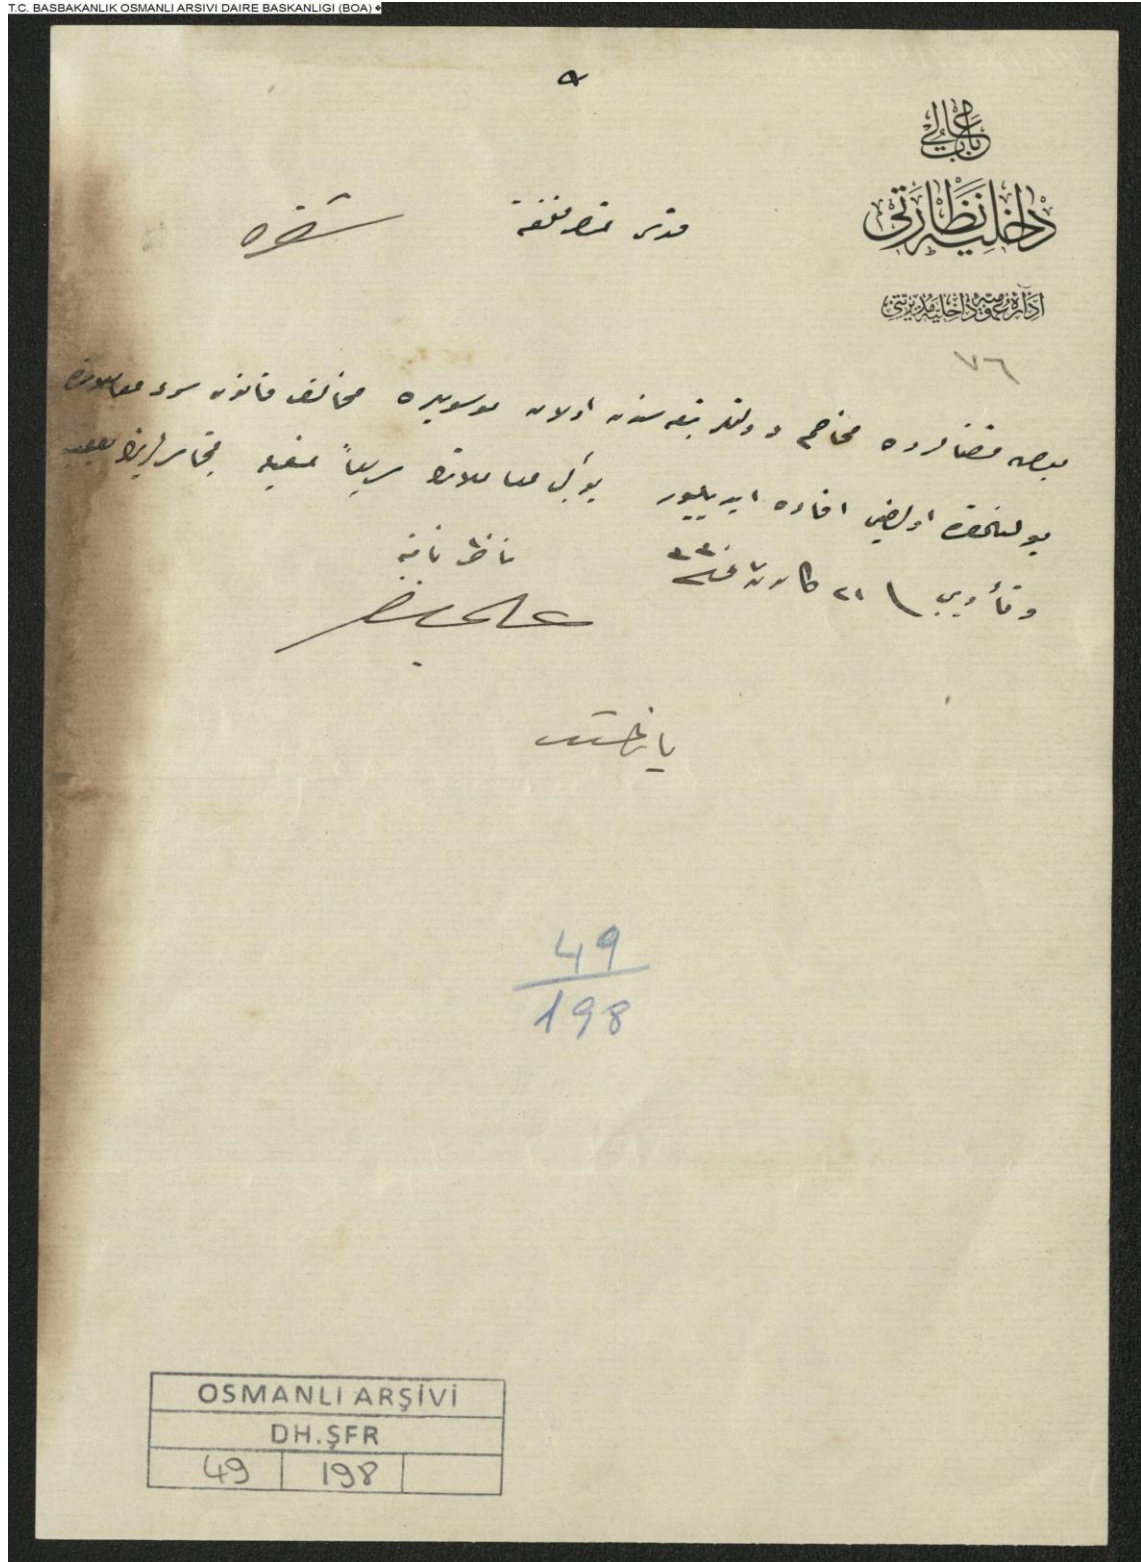 T.C. BASBAKANLIK OSMANLI ARSIVI DAIRE BASKANLIGI (BOA)
باب عالی
داخلیه نظارتی
اداره عمومیه داخلیه مدیریتی
٧٦
قدس متصرفلغنه
شفره
بعض قضالرده مخاصم دولتلر تبعه‌سندن اولان موسویلره مخالف قانون سوء معاملده
بولنمقده اولدیغی افاده ایدیلیور بوکبی معاملاتك سریعاً منعیله متجاسرلرینك تعقیب
و تأدیبی ٢١ كانون ٣٣٠
ناظر نامنه
علی منیف
یازلمشدر
49
198
OSMANLI ARŞİVİ
DH.ŞFR
49 198